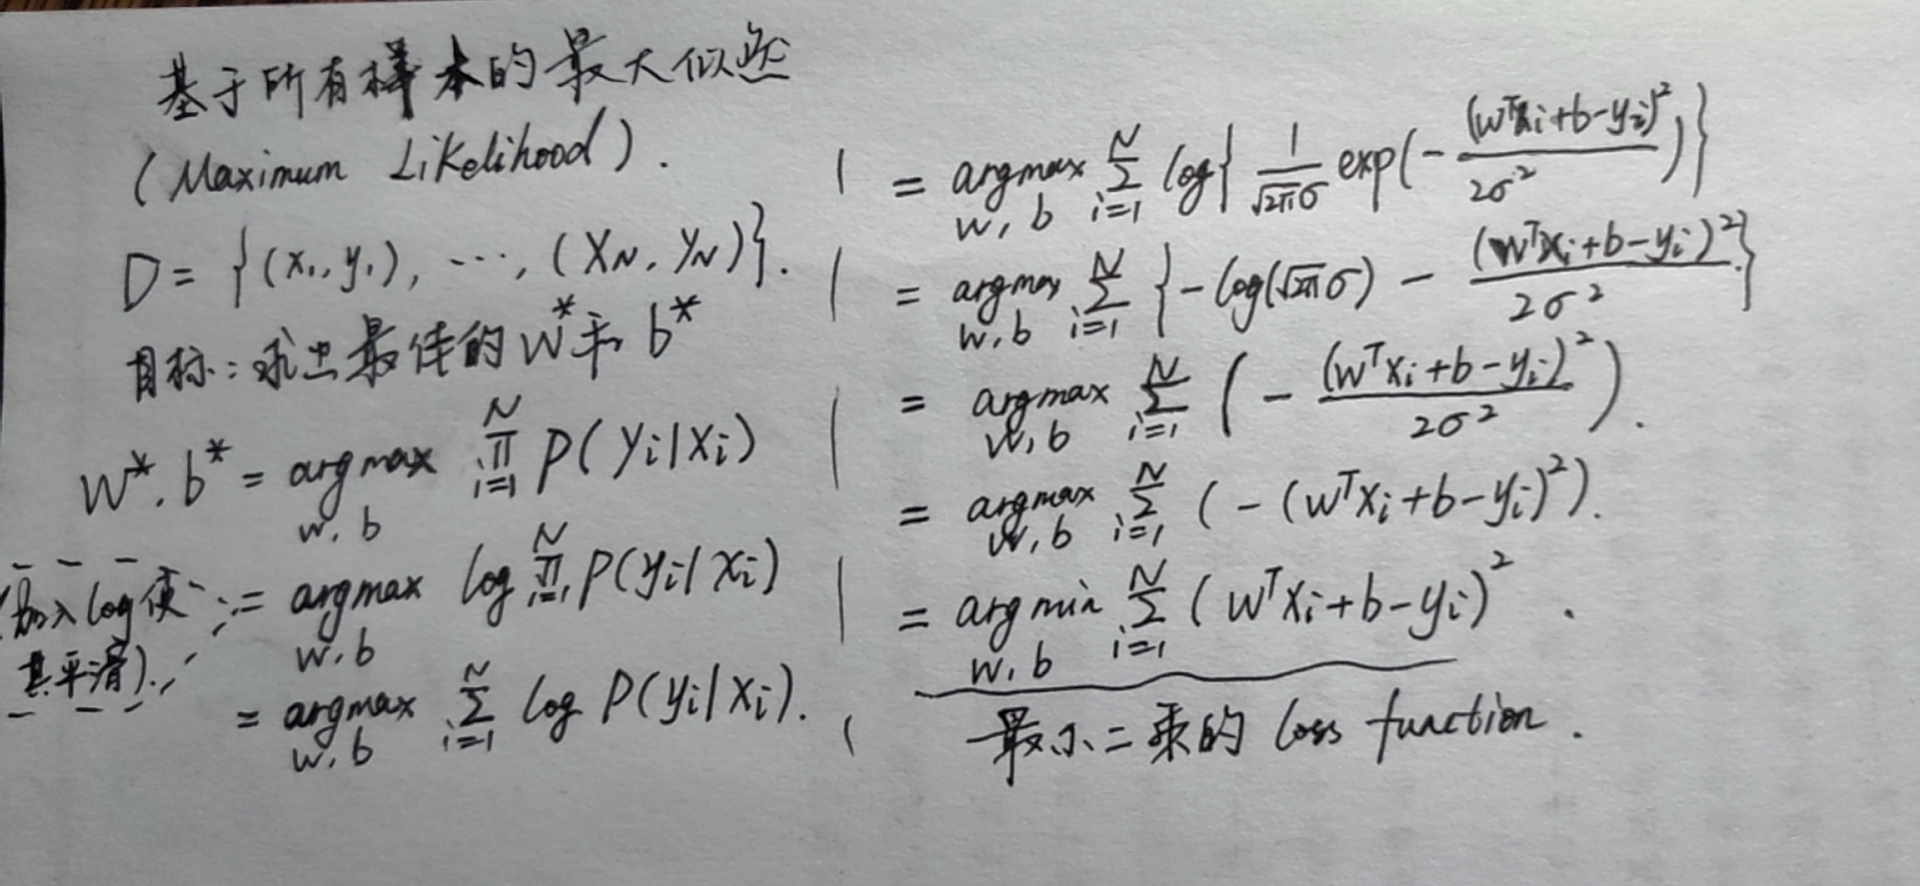 基于所有样本的最大似然
(Maximum Likelihood).
D = {(x₁, y₁), ..., (x_N, y_N)}.
目标: 求出最佳的 w* 和 b*
w*, b* = argmax_{w,b} ∏_{i=1}^{N} P(y_i|x_i)
(加入log使其平滑). = argmax_{w,b} log ∏_{i=1}^{N} P(y_i|x_i)
= argmax_{w,b} ∑_{i=1}^{N} log P(y_i|x_i).
= argmax_{w,b} ∑_{i=1}^{N} log{ 1/(√(2π)σ) exp(-(w^T x_i+b-y_i)²/(2σ²)) }
= argmax_{w,b} ∑_{i=1}^{N} { -log(√(2π)σ) - (w^T x_i+b-y_i)²/(2σ²) }
= argmax_{w,b} ∑_{i=1}^{N} ( -(w^T x_i+b-y_i)²/(2σ²) ).
= argmax_{w,b} ∑_{i=1}^{N} (-(w^T x_i+b-y_i)²).
= argmin_{w,b} ∑_{i=1}^{N} (w^T x_i+b-y_i)².
最小二乘的 loss function.